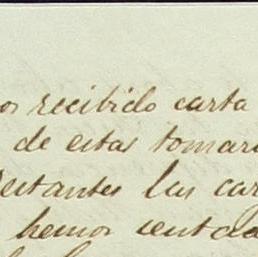 os recibido carta
de estas tomar
restantes las car
hemos sentado